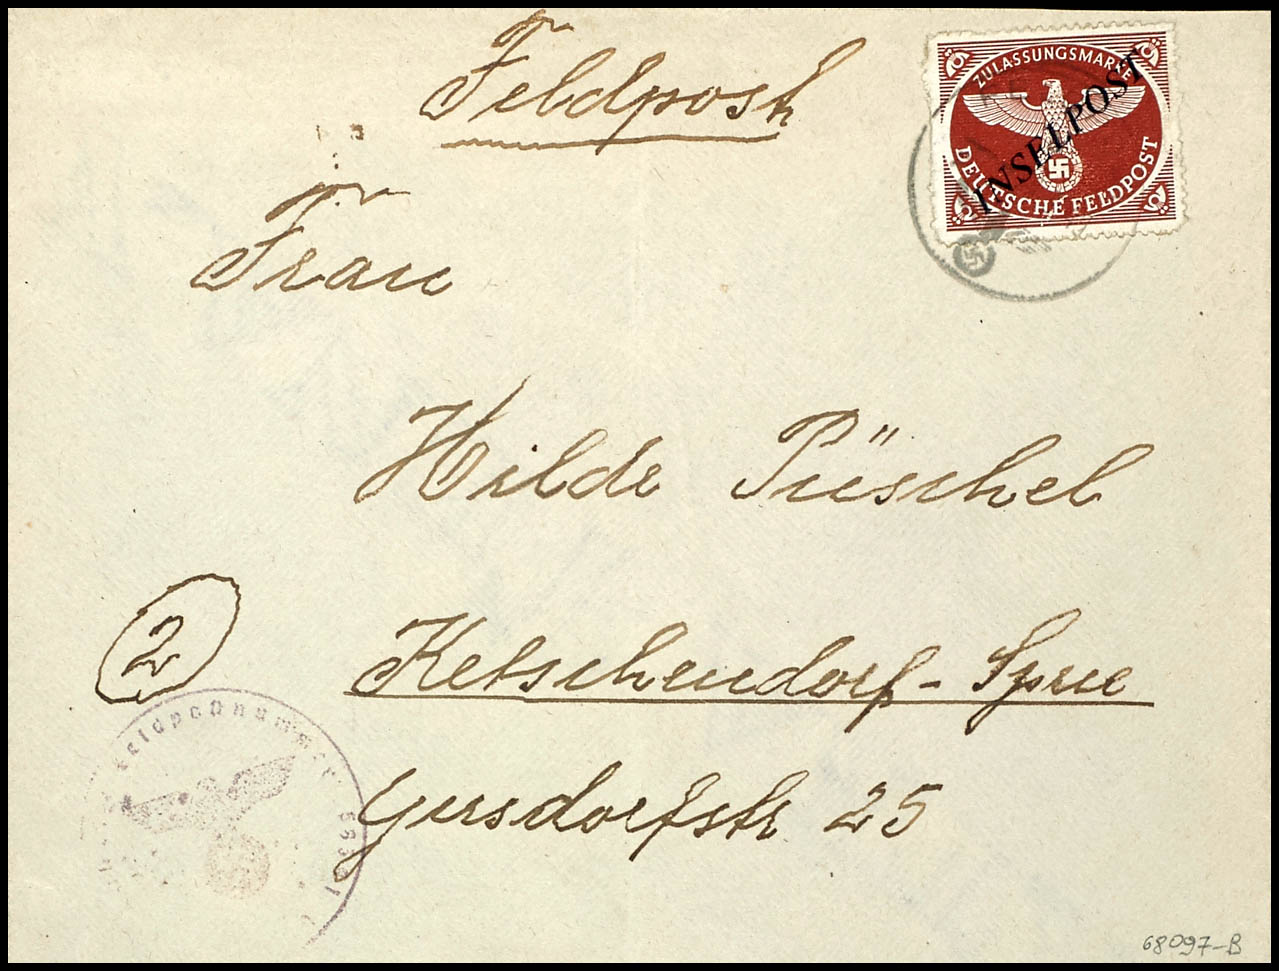 Feldpost
ZULASSUNGSMARKE
INSELPOST
DEUTSCHE FELDPOST
Frau
Hilde Püschel
2
Ketschendorf - Spree
Gersdorfstr 25
Feldpostnummer
68097-B